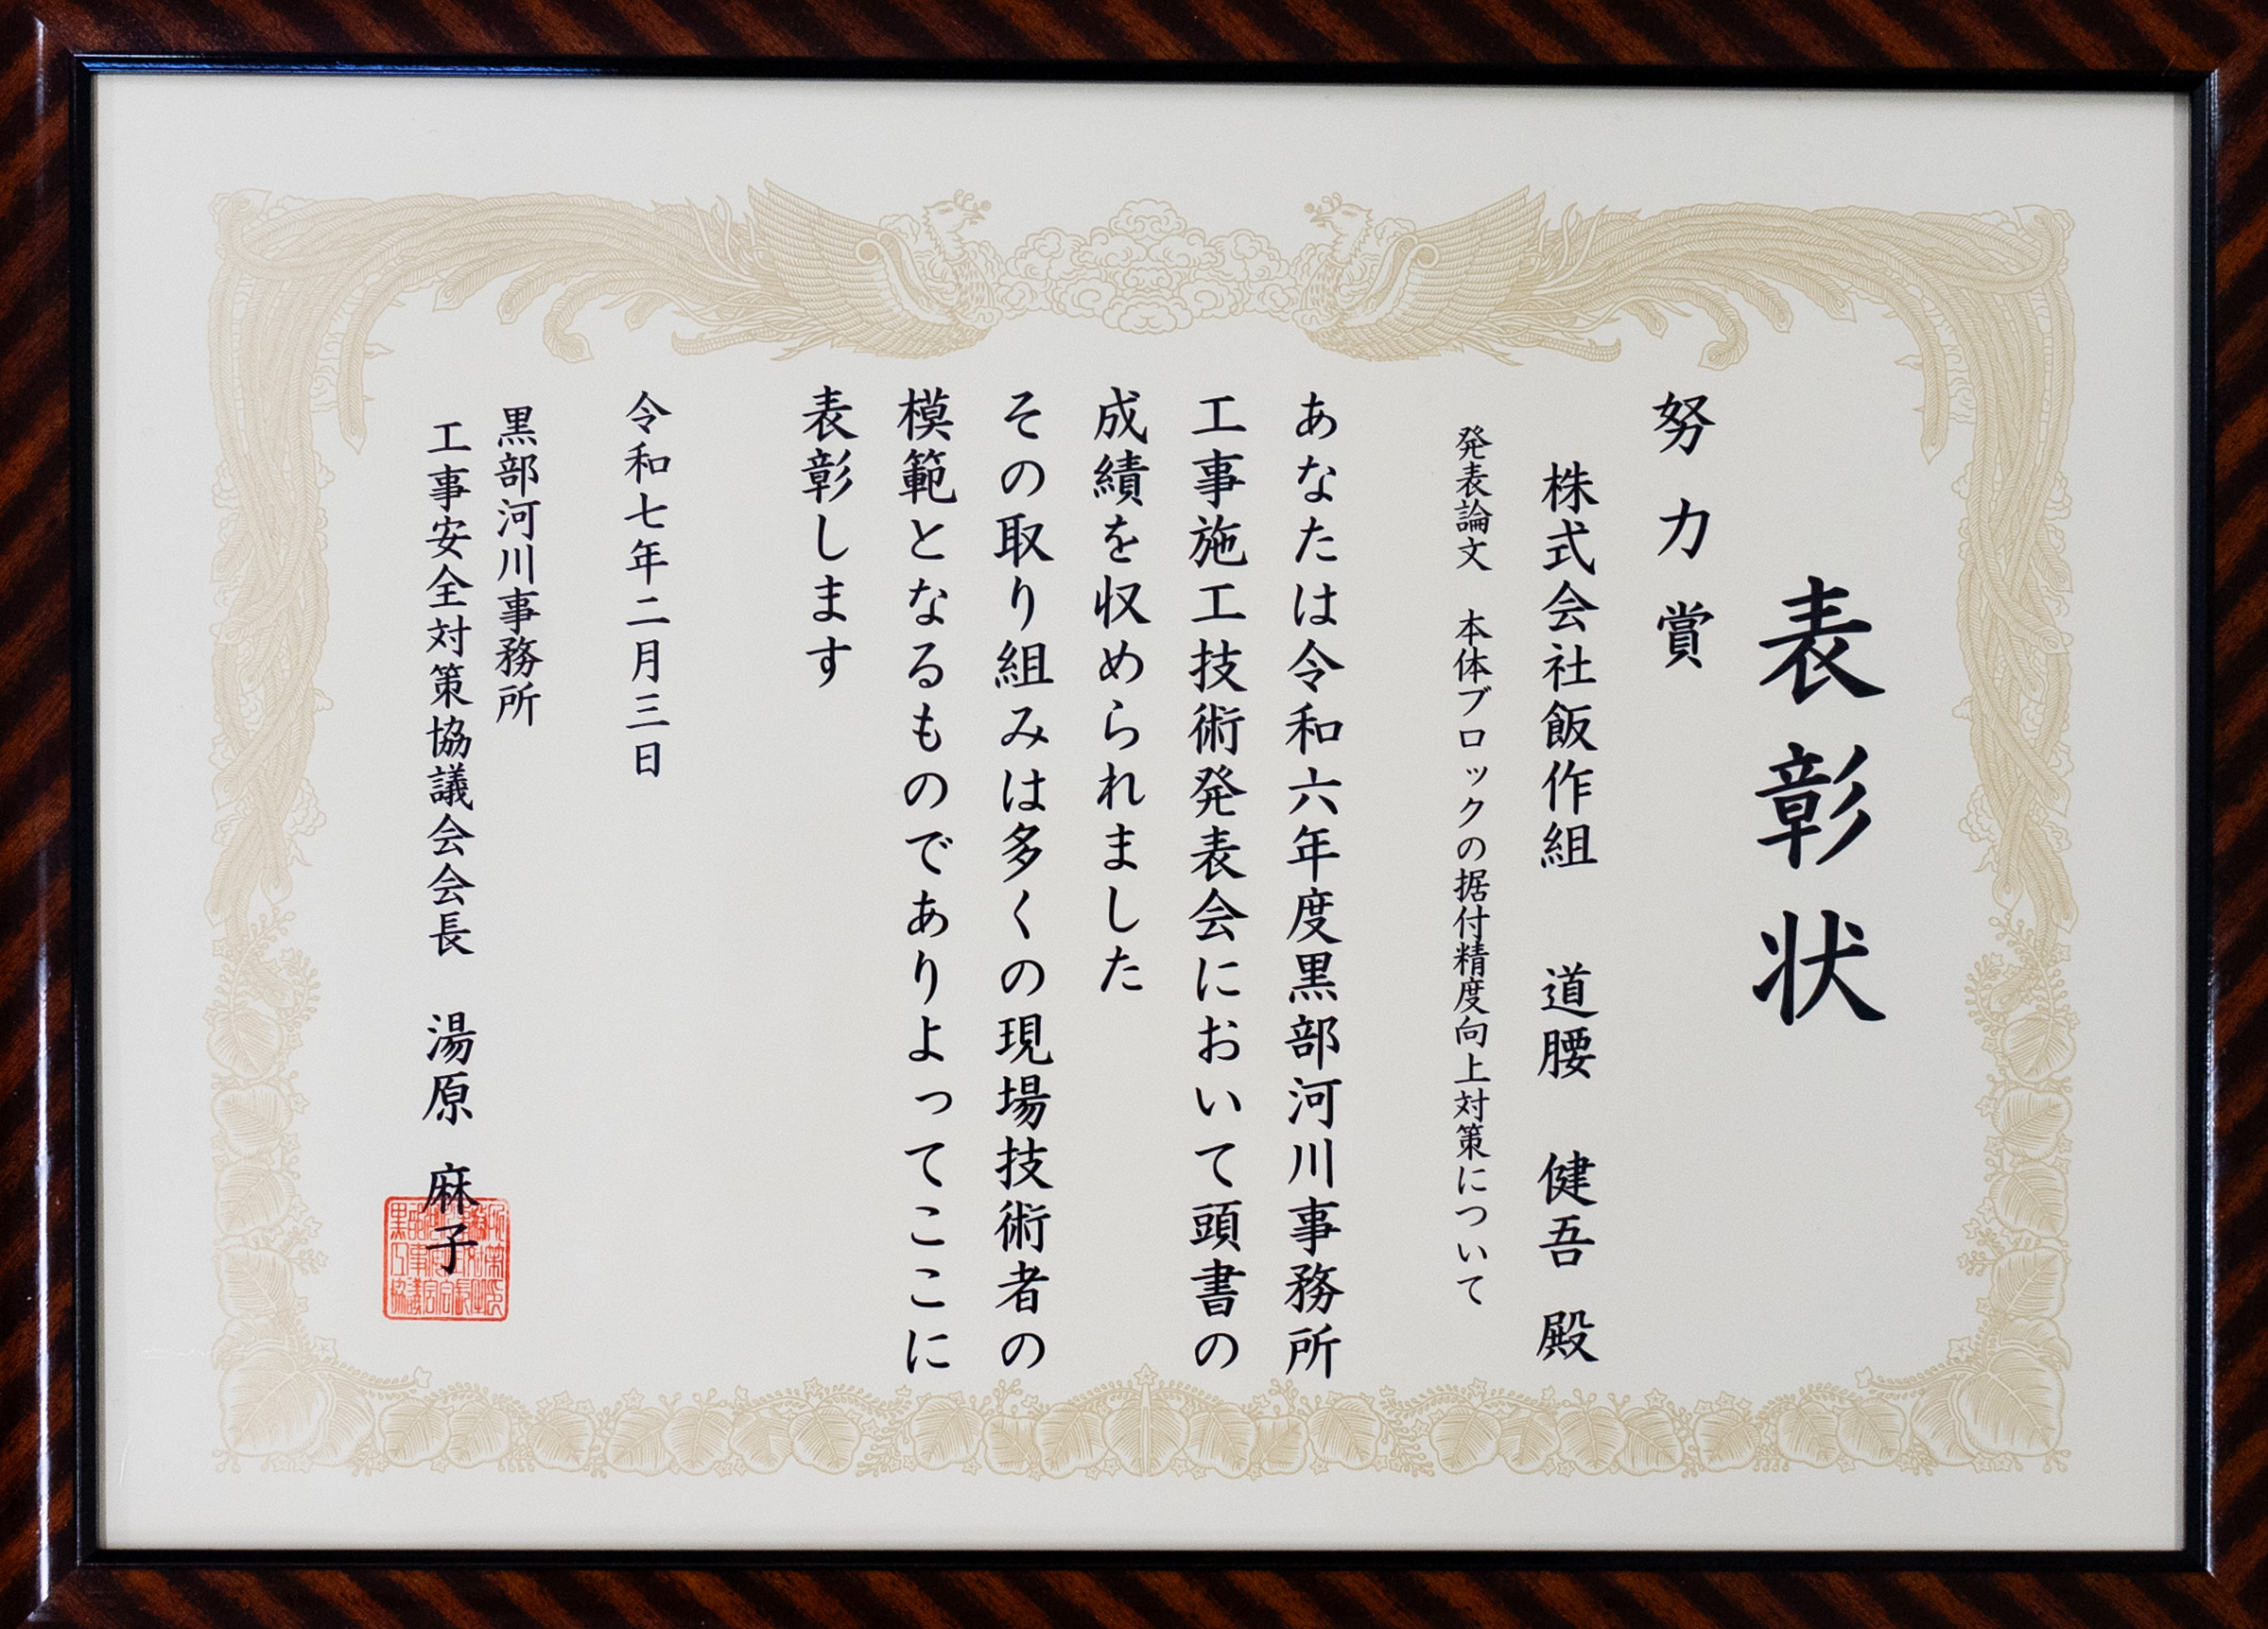 表彰状
努力賞
株式会社飯作組 道腰 健吾 殿
発表論文 本体ブロックの据付精度向上対策について
あなたは令和六年度黒部河川事務所
工事施工技術発表会において頭書の
成績を収められました
その取り組みは多くの現場技術者の
模範となるものでありよってここに
表彰します
令和七年二月三日
黒部河川事務所
工事安全対策協議会会長 湯原 麻子